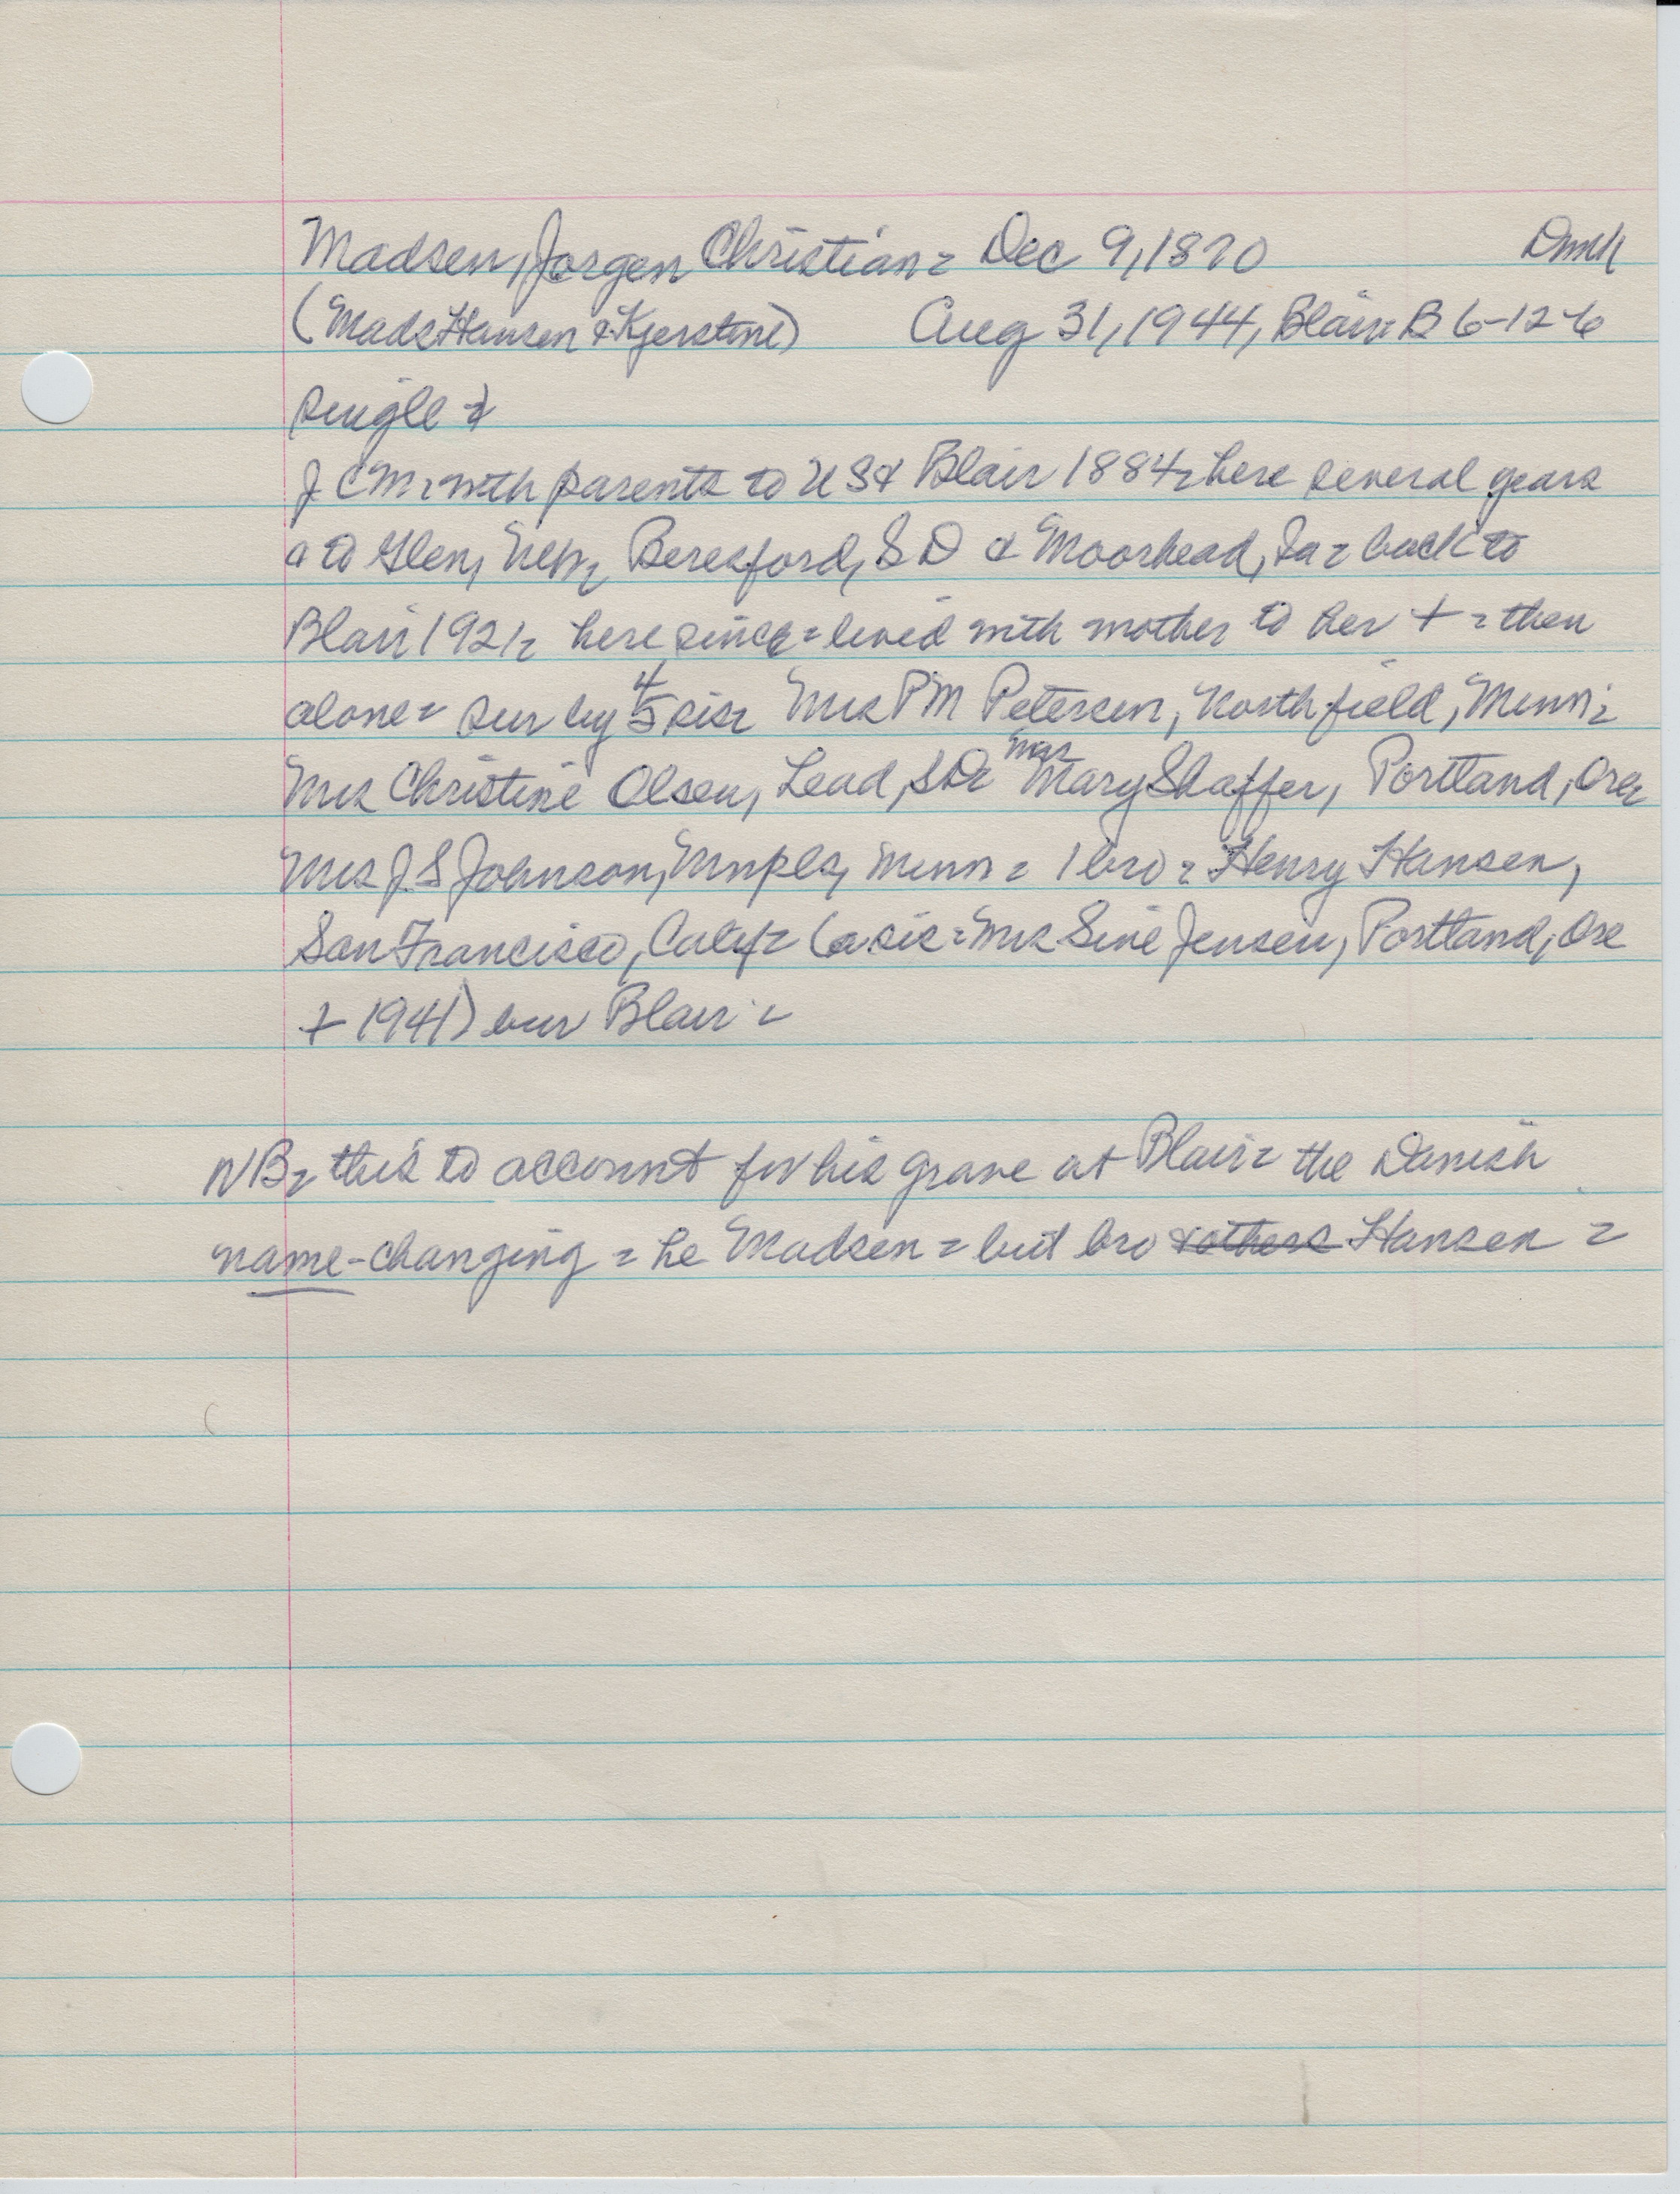 Madsen, Jorgen Christian = Dec 9, 1870 Dmk
(Mads Hansen & Kjerstine) Aug 31, 1944, Blair = B 6-12-6
single =
J C M = with parents to US & Blair 1884 = here several years
a to Glen, Neb = Beresford, S D & Moorhead, Ia = back to
Blair 1921 = here since = lived with mother to her + = then
alone = sur by 4 sis = Mrs P M Petersen, Northfield, Minn =
Mrs Christine Olsen, Lead, SD = Mrs Mary Shaffer, Portland, Ore =
Mrs J. S Johnson, Mnpls, Minn = 1 bro = Henry Hansen,
San Francisco, Calif = (a sis = Mrs Sine Jensen, Portland, Ore
+ 1941) bur Blair =
NB = this to account for his grave at Blair = the Danish
name-changing = he Madsen = but bro & others Hansen =